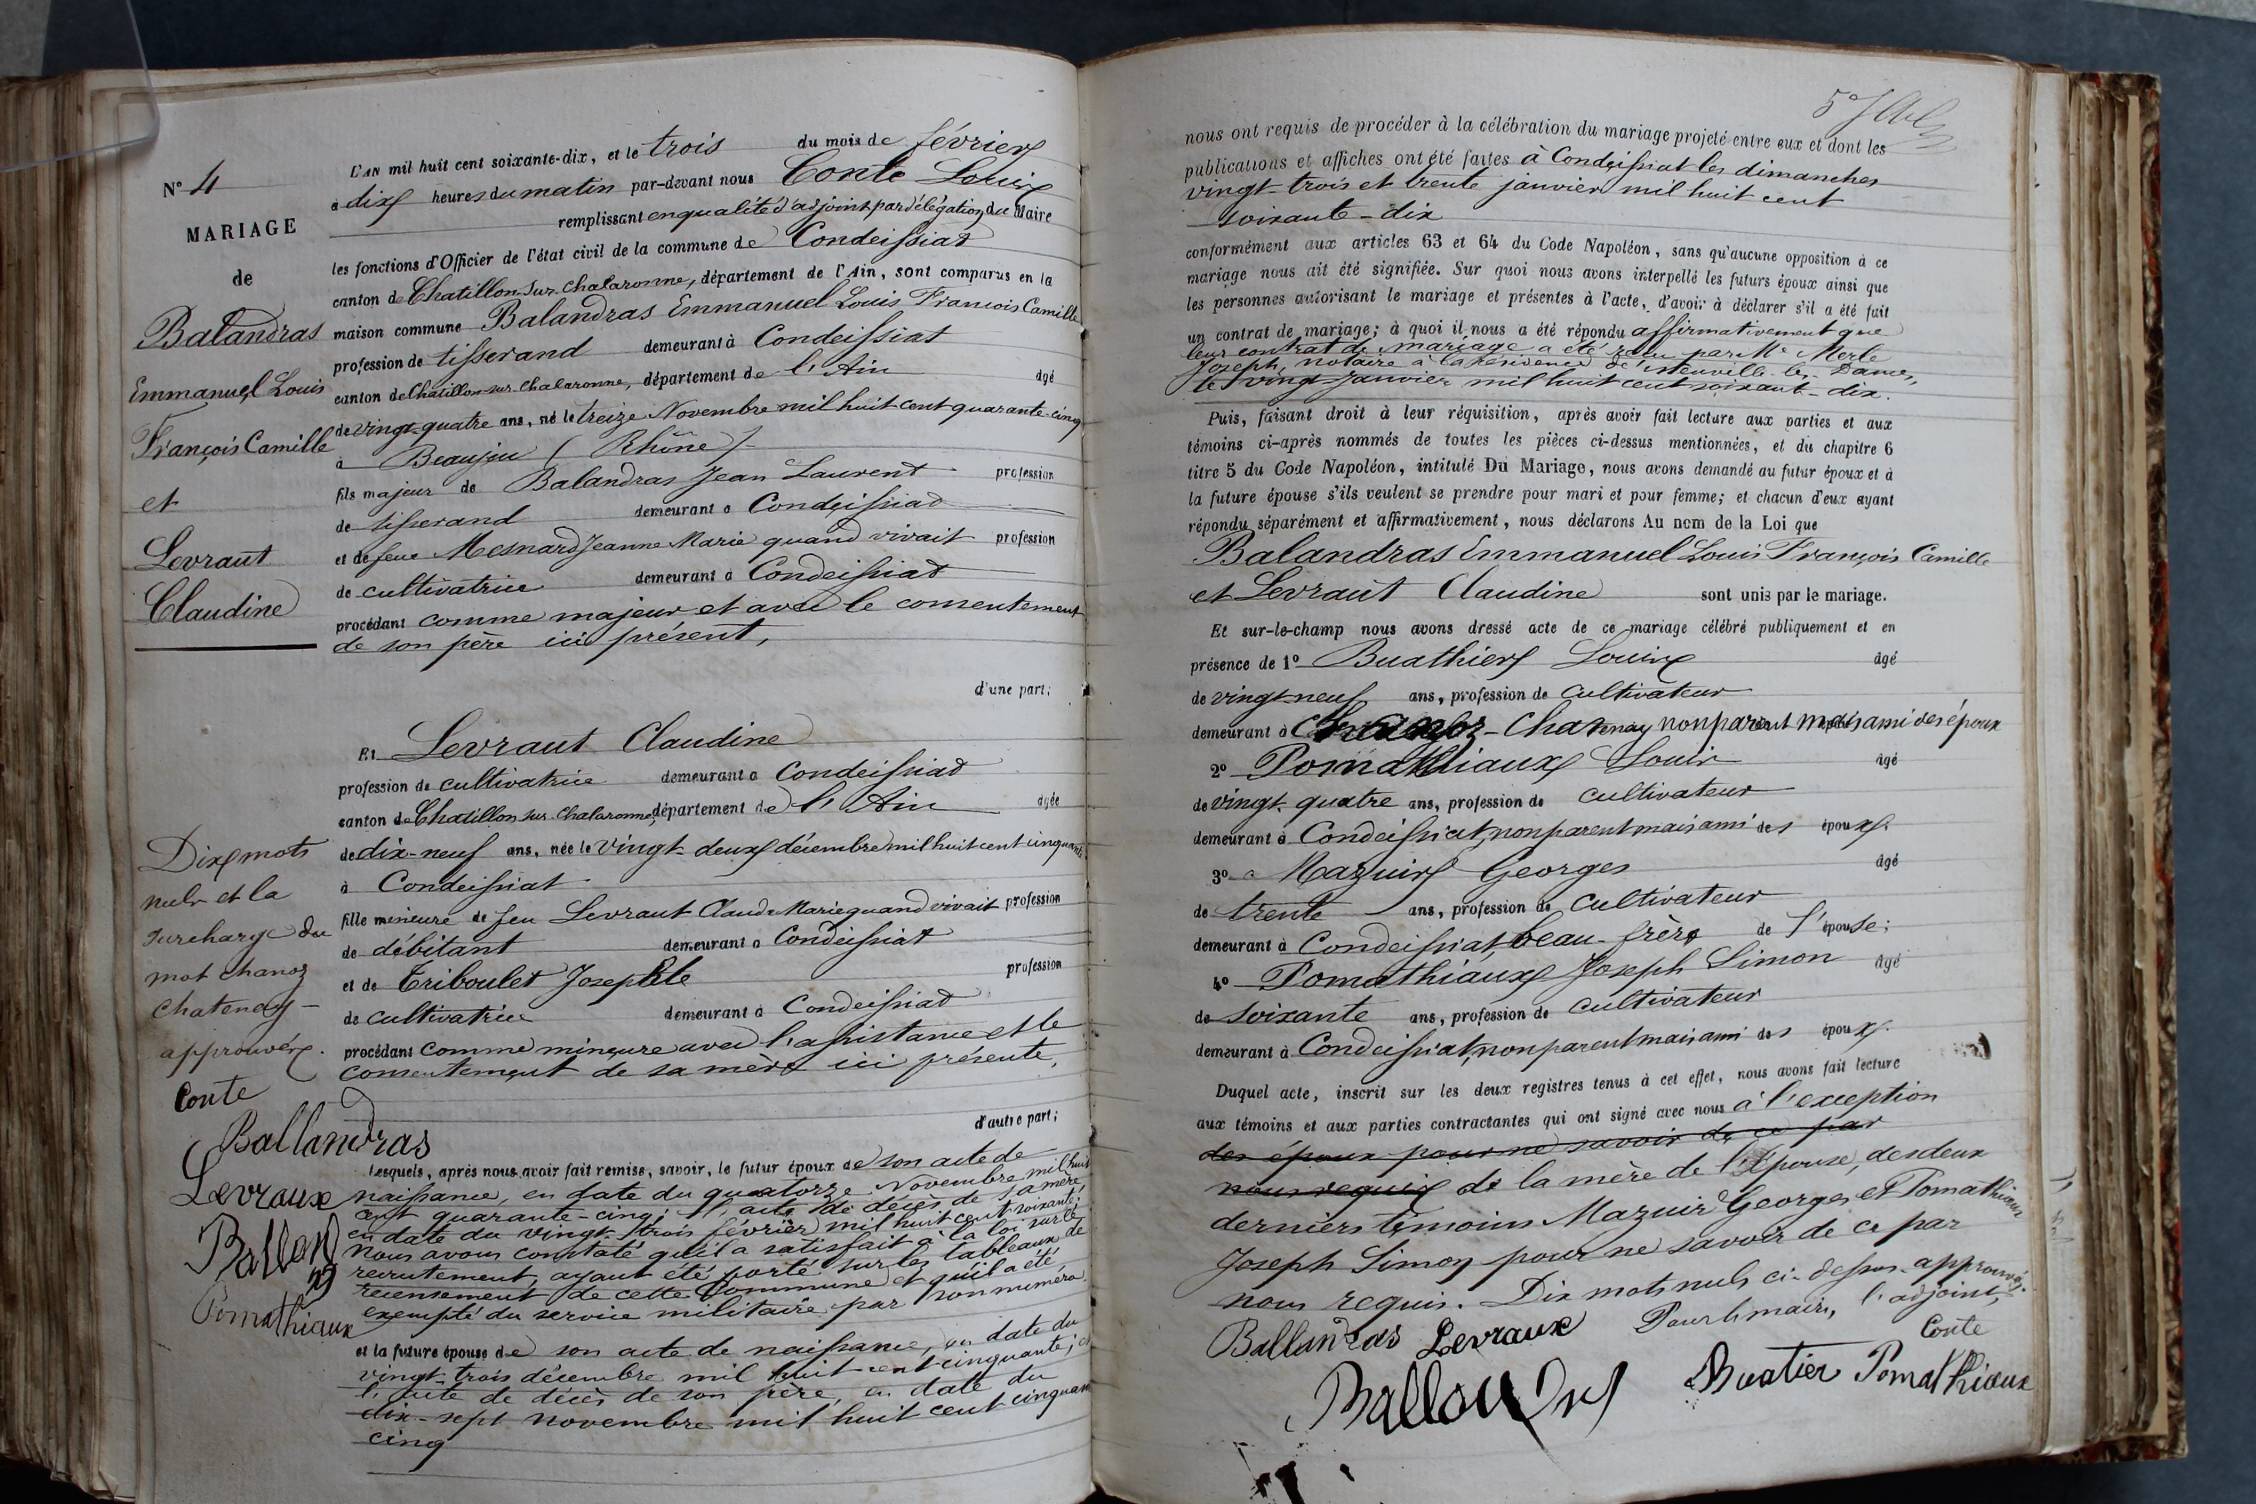 N° 4
MARIAGE
de
Balandras
Emmanuel Louis
François Camille
et
Levraut
Claudine
Dix mots
nuls et la
surcharge du
mot chanoz
chatenay
approuvés.
Conte
Ballandras
Levraux
Balland
Pomathiaux
L'AN mil huit cent soixante-dix, et le trois du mois de février
à dix heures du matin par-devant nous Conte Louis
remplissant en qualité d'adjoint par délégation du Maire
les fonctions d'Officier de l'état civil de la commune de Condeissiat
canton de Chatillon sur Chalaronne, département de l'Ain, sont comparus en la
maison commune Balandras Emmanuel Louis Francois Camille
profession de tisserand demeurant à Condeissiat
canton de Chatillon-sur-Chalaronne, département de l'Ain âgé
de vingt-quatre ans, né le treize Novembre mil huit cent quarante-cinq
à Beaujeu (Rhône)
fils majeur de Balandras Jean Laurent profession
de tisserand demeurant à Condeissiat
et de feue Mesnard Jeanne Marie quand vivait profession
de cultivatrice demeurant à Condeissiat
procédant comme majeur et avec le consentement
de son père ici présent,
d'une part;
Et Levraut Claudine
profession de cultivatrice demeurant à Condeissiat
canton de Chatillon sur Chalaronne, département de l'Ain âgée
de dix-neuf ans, née le vingt-deux décembre mil huit cent cinquante
à Condeissiat
fille mineure de feu Levraut Claude Marie quand vivait profession
de débitant demeurant à Condeissiat
et de Triboulet Josephte profession
de cultivatrice demeurant à Condeissiat
procédant comme mineure avec l'assistance et le
consentement de sa mère ici présente,
d'autre part;
Lesquels, après nous avoir fait remise, savoir, le futur époux de son acte de
naissance, en date du quatorze Novembre mil huit
cent quarante-cinq; l'acte de décès de sa mère,
en date du vingt-trois février mil huit cent soixante;
Nous avons constaté qu'il a satisfait à la loi sur le
recrutement, ayant été porté sur les tableaux de
recensement de cette Commune et qu'il a été
exempté du service militaire par son numéro
et la future épouse de son acte de naissance, en date du
vingt-trois décembre mil huit cent cinquante; et
l'acte de décès de son père, en date du
dix-sept novembre mil huit cent cinquante
cinq
nous ont requis de procéder à la célébration du mariage projeté entre eux et dont les
publications et affiches ont été faites à Condeissiat les dimanches
vingt-trois et trente janvier mil huit cent
soixante-dix
conformément aux articles 63 et 64 du Code Napoléon, sans qu'aucune opposition à ce
mariage nous ait été signifiée. Sur quoi nous avons interpellé les futurs époux ainsi que
les personnes autorisant le mariage et présentes à l'acte, d'avoir à déclarer s'il a été fait
un contrat de mariage; à quoi il nous a été répondu affirmativement que
leur contrat de mariage a été reçu par Me Merle
Joseph, notaire à la résidence de Neuville-les-Dames,
le vingt janvier mil huit cent soixante-dix.
Puis, faisant droit à leur réquisition, après avoir fait lecture aux parties et aux
témoins ci-après nommés de toutes les pièces ci-dessus mentionnées, et du chapitre 6
titre 5 du Code Napoléon, intitulé Du Mariage, nous avons demandé au futur époux et à
la future épouse s'ils veulent se prendre pour mari et pour femme; et chacun d'eux ayant
répondu séparément et affirmativement, nous déclarons Au nom de la Loi que
Balandras Emmanuel Louis François Camille
et Levraut Claudine sont unis par le mariage.
Et sur-le-champ nous avons dressé acte de ce mariage célébré publiquement et en
présence de 1° Buathier Louis âgé
de vingt-neuf ans, profession de cultivateur
demeurant à Chanoz-Chatenay non parent mais ami des époux
2° Pomathiaux Louis âgé
de vingt-quatre ans, profession de cultivateur
demeurant à Condeissiat, non parent mais ami des époux.
3° Mazuir Georges âgé
de trente ans, profession de cultivateur
demeurant à Condeissiat, beau-frère de l'épouse;
4° Pomathiaux Joseph Simon âgé
de soixante ans, profession de cultivateur
demeurant à Condeissiat, non parent mais ami des époux.
Duquel acte, inscrit sur les deux registres tenus à cet effet, nous avons fait lecture
aux témoins et aux parties contractantes qui ont signé avec nous à l'exception
des époux pour ne savoir de ce par
nous requis de la mère de l'épouse, des deux
derniers témoins Mazuir Georges et Pomathiaux
Joseph Simon pour ne savoir de ce par
nous requis. Dix mots nuls ci-dessus approuvés.
Pour le maire, l'adjoint,
Ballandras Levraux Conte
Balland Buatier Pomathiaux